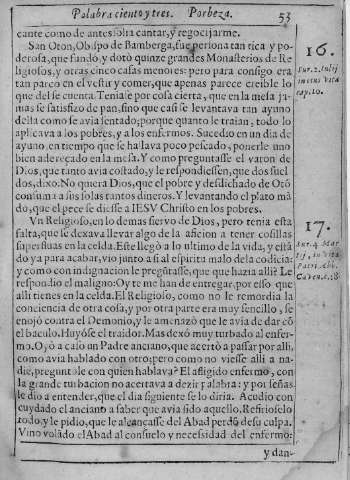 Palabra ciento y tres. Pobreza. 53
cante como de antes solia cantar, y regocijarme.
San Oton, Obispo de Bamberga, fue persona tan rica y po-
derosa, que fundò, y dotò quinze grandes Monasterios de Re
ligiosos, y otras cinco casas menores: pero para consigo era
tan parco en el vestir y comer, que apenas parece creible lo
que del se cuenta. Tenia se por cosa cierta, que en la mesa ja-
mas se satisfizo de pan, sino que casi se levantava tan ayuno
della como se avia sentado; porque quanto le traian, todo lo
aplicava a los pobres, y a los enfermos. Sucedio en un dia de
ayuno, en tiempo que se hallava poco pescado, ponerle uno
bien adereçado en la mesa. Y como preguntasse el varon de
Dios, que tanto avia costado, y le respondiessen, que dos suel
dos, dixo: No quiera Dios, que el pobre y desdichado de Otõ
consuma a sus solas tantos dineros. Y levantando el plato mã
dò, que el pece se diesse a IESV Christo en los pobres.
Vn Religioso, en lo demas siervo de Dios, pero tenia esta
falta, que se dexava llevar algo de la aficion a tener cosillas
superfluas en la celda. Este llegò a lo ultimo de la vida, y està
do ya para acabar, vio junto a si al espiritu malo de la codicia:
y como con indignacion le pregũtasse, que que hazia alli? Le
respondio el maligno: Oy te me han de entregar, por esso que
alli tienes en la celda. El Religioso, como no le remordia la
conciencia de otra cosa, y por otra parte era muy sencillo, se
enojò contra el Demonio, y le amenazò que le avia de dar cõ
el baculo. Huyòse el traidor. Mas dexò muy turbado al enfer-
mo. Oyò a caso un Padre anciano, que acertò a passar por alli,
como avia hablado con otro; pero como no viesse alli a na-
die, preguntòle con quien hablava? El afligido enfermo, con
la grande turbacion no acertava a dezir palabra: y por señas
le dio a entender, que el dia siguiente se lo diria. Acudio con
cuydado el anciano a saber que avia sido aquello. Refirioselo
todo, y le pidio, que le alcançasse del Abad perdõ de su culpa.
Vino volãdo el Abad al consuelo y necessidad del enfermo:
y dan-
16.
Sur. 2. Iulij
in eius vita
cap. 10.
17.
Sur. 4. Mar
tij, in vita
Patri. Abb.